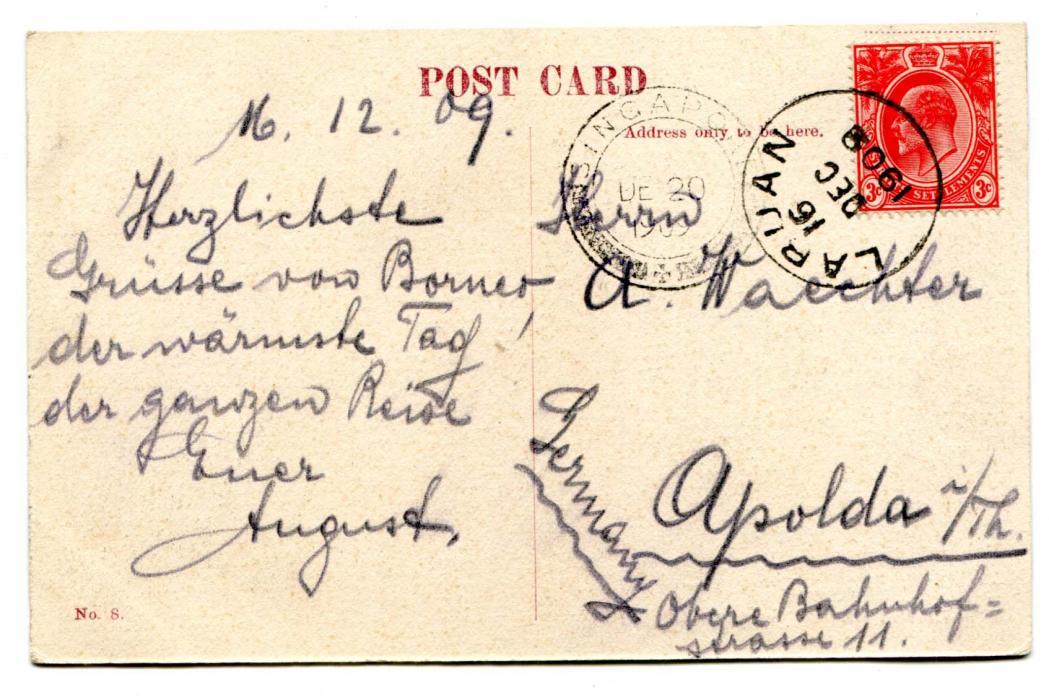 POST CARD
Address only to be here.
16. 12. 09.
Herzlichste
Grüsse von Borneo
der wärmste Tag
der ganzen Reise
Euer
August.
No. 8.
Herrn
A. Waechter
Germany
Apolda i/Th.
Obere Bahnhof=
strasse 11.
SINGAPO
DE 20
1909
LARIJAN
16
DEC
1909
SETTLEMENTS
3c 3c